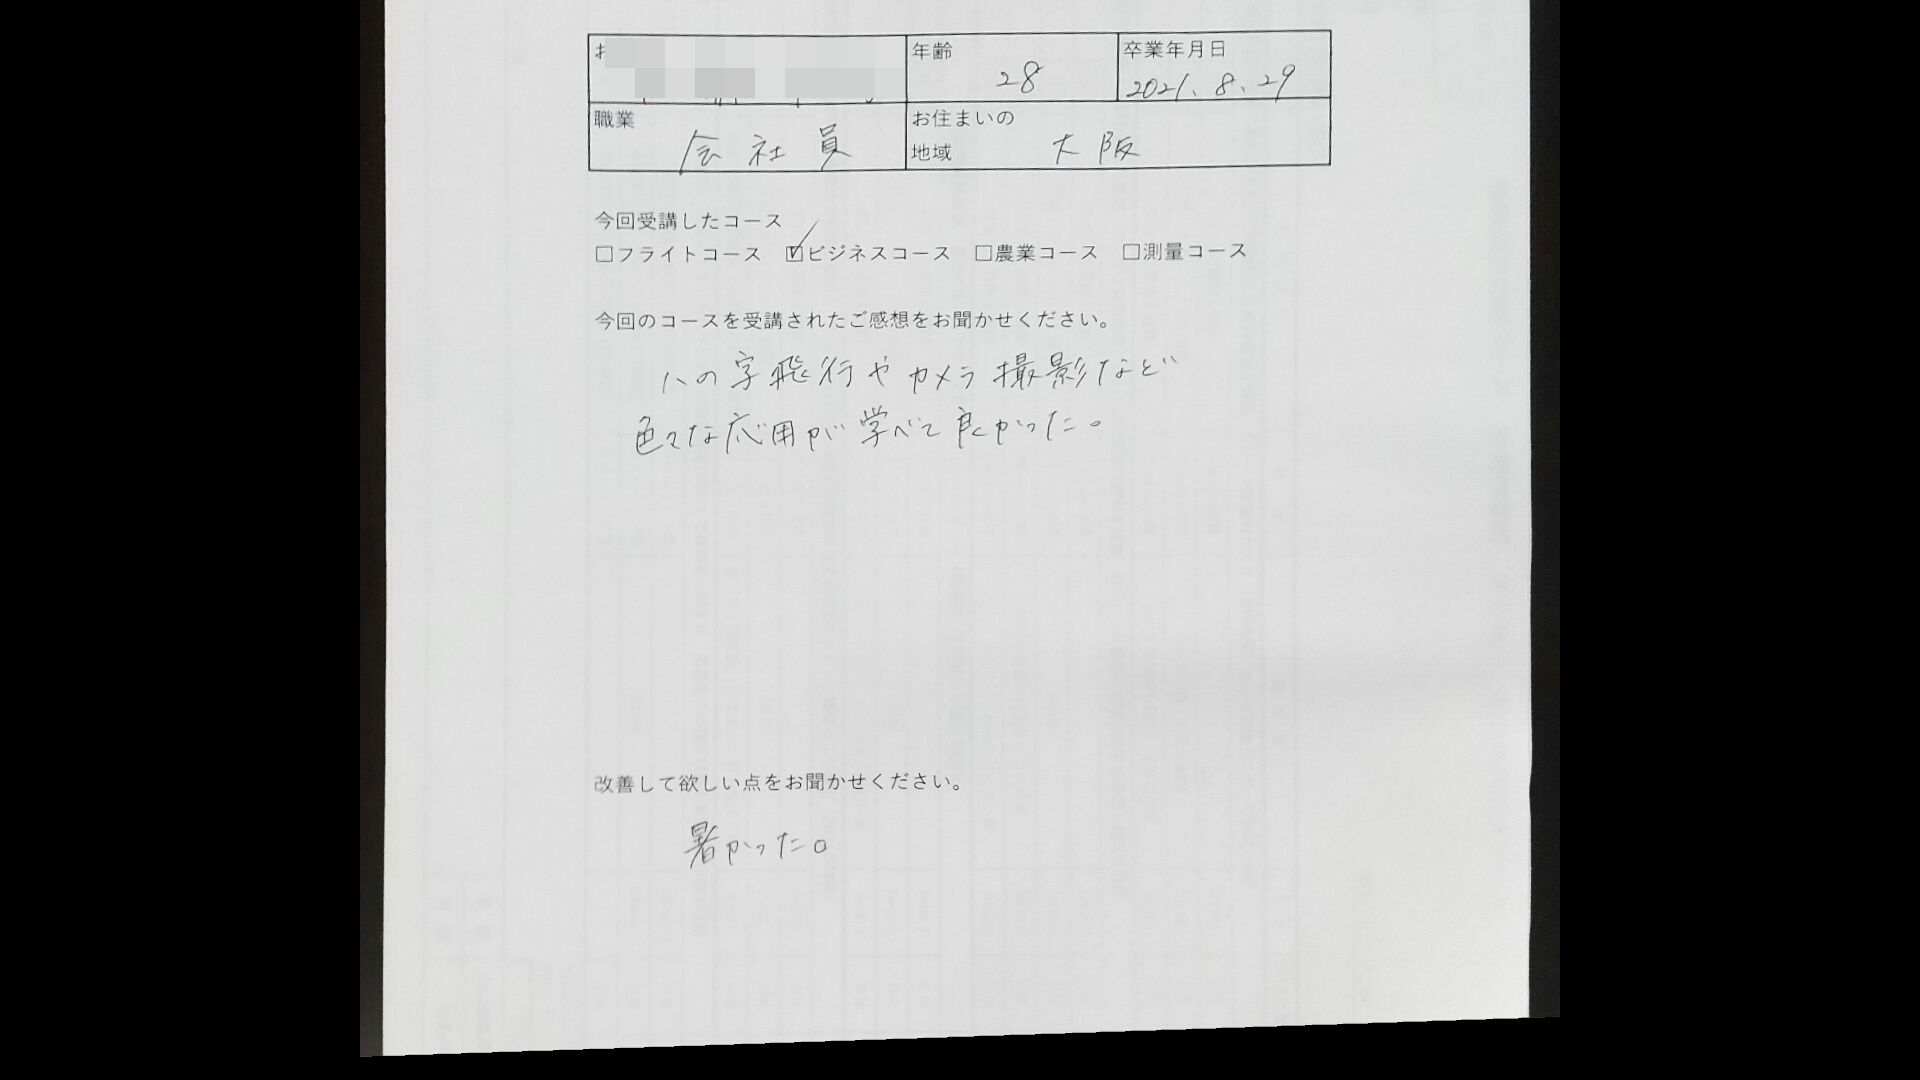 年齢 28
卒業年月日 2021.8.29
職業 会社員
お住まいの
地域 大阪
今回受講したコース
□フライトコース ☑ビジネスコース □農業コース □測量コース
今回のコースを受講されたご感想をお聞かせください。
ハの字飛行やカメラ撮影など
色々な応用が学べて良かった。
改善して欲しい点をお聞かせください。
暑かった。